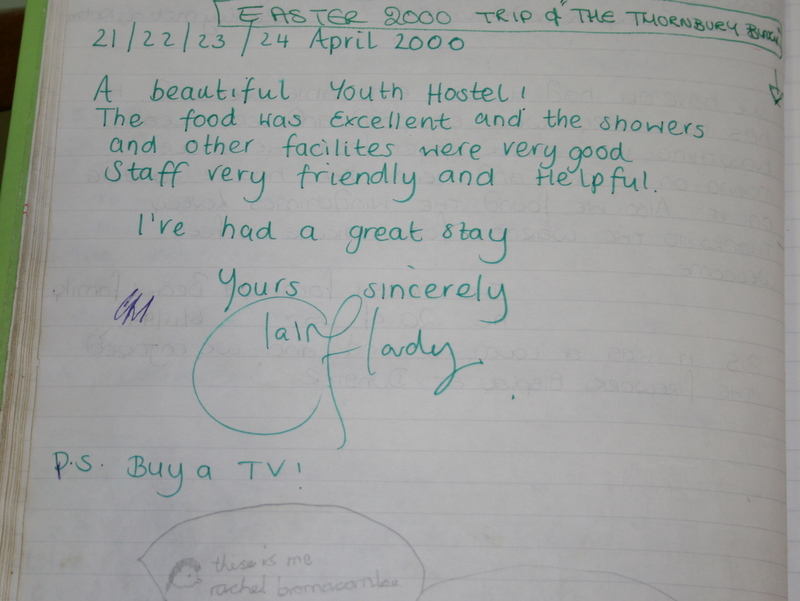 EASTER 2000 TRIP & THE THORNBURY
21/22/23/24 April 2000
A beautiful Youth Hostel!
The food was Excellent and the showers
and other facilites were very good
Staff very friendly and Helpful.
I've had a great stay
Yours sincerely
Iain
P.S. Buy a TV!
these is me
rachel